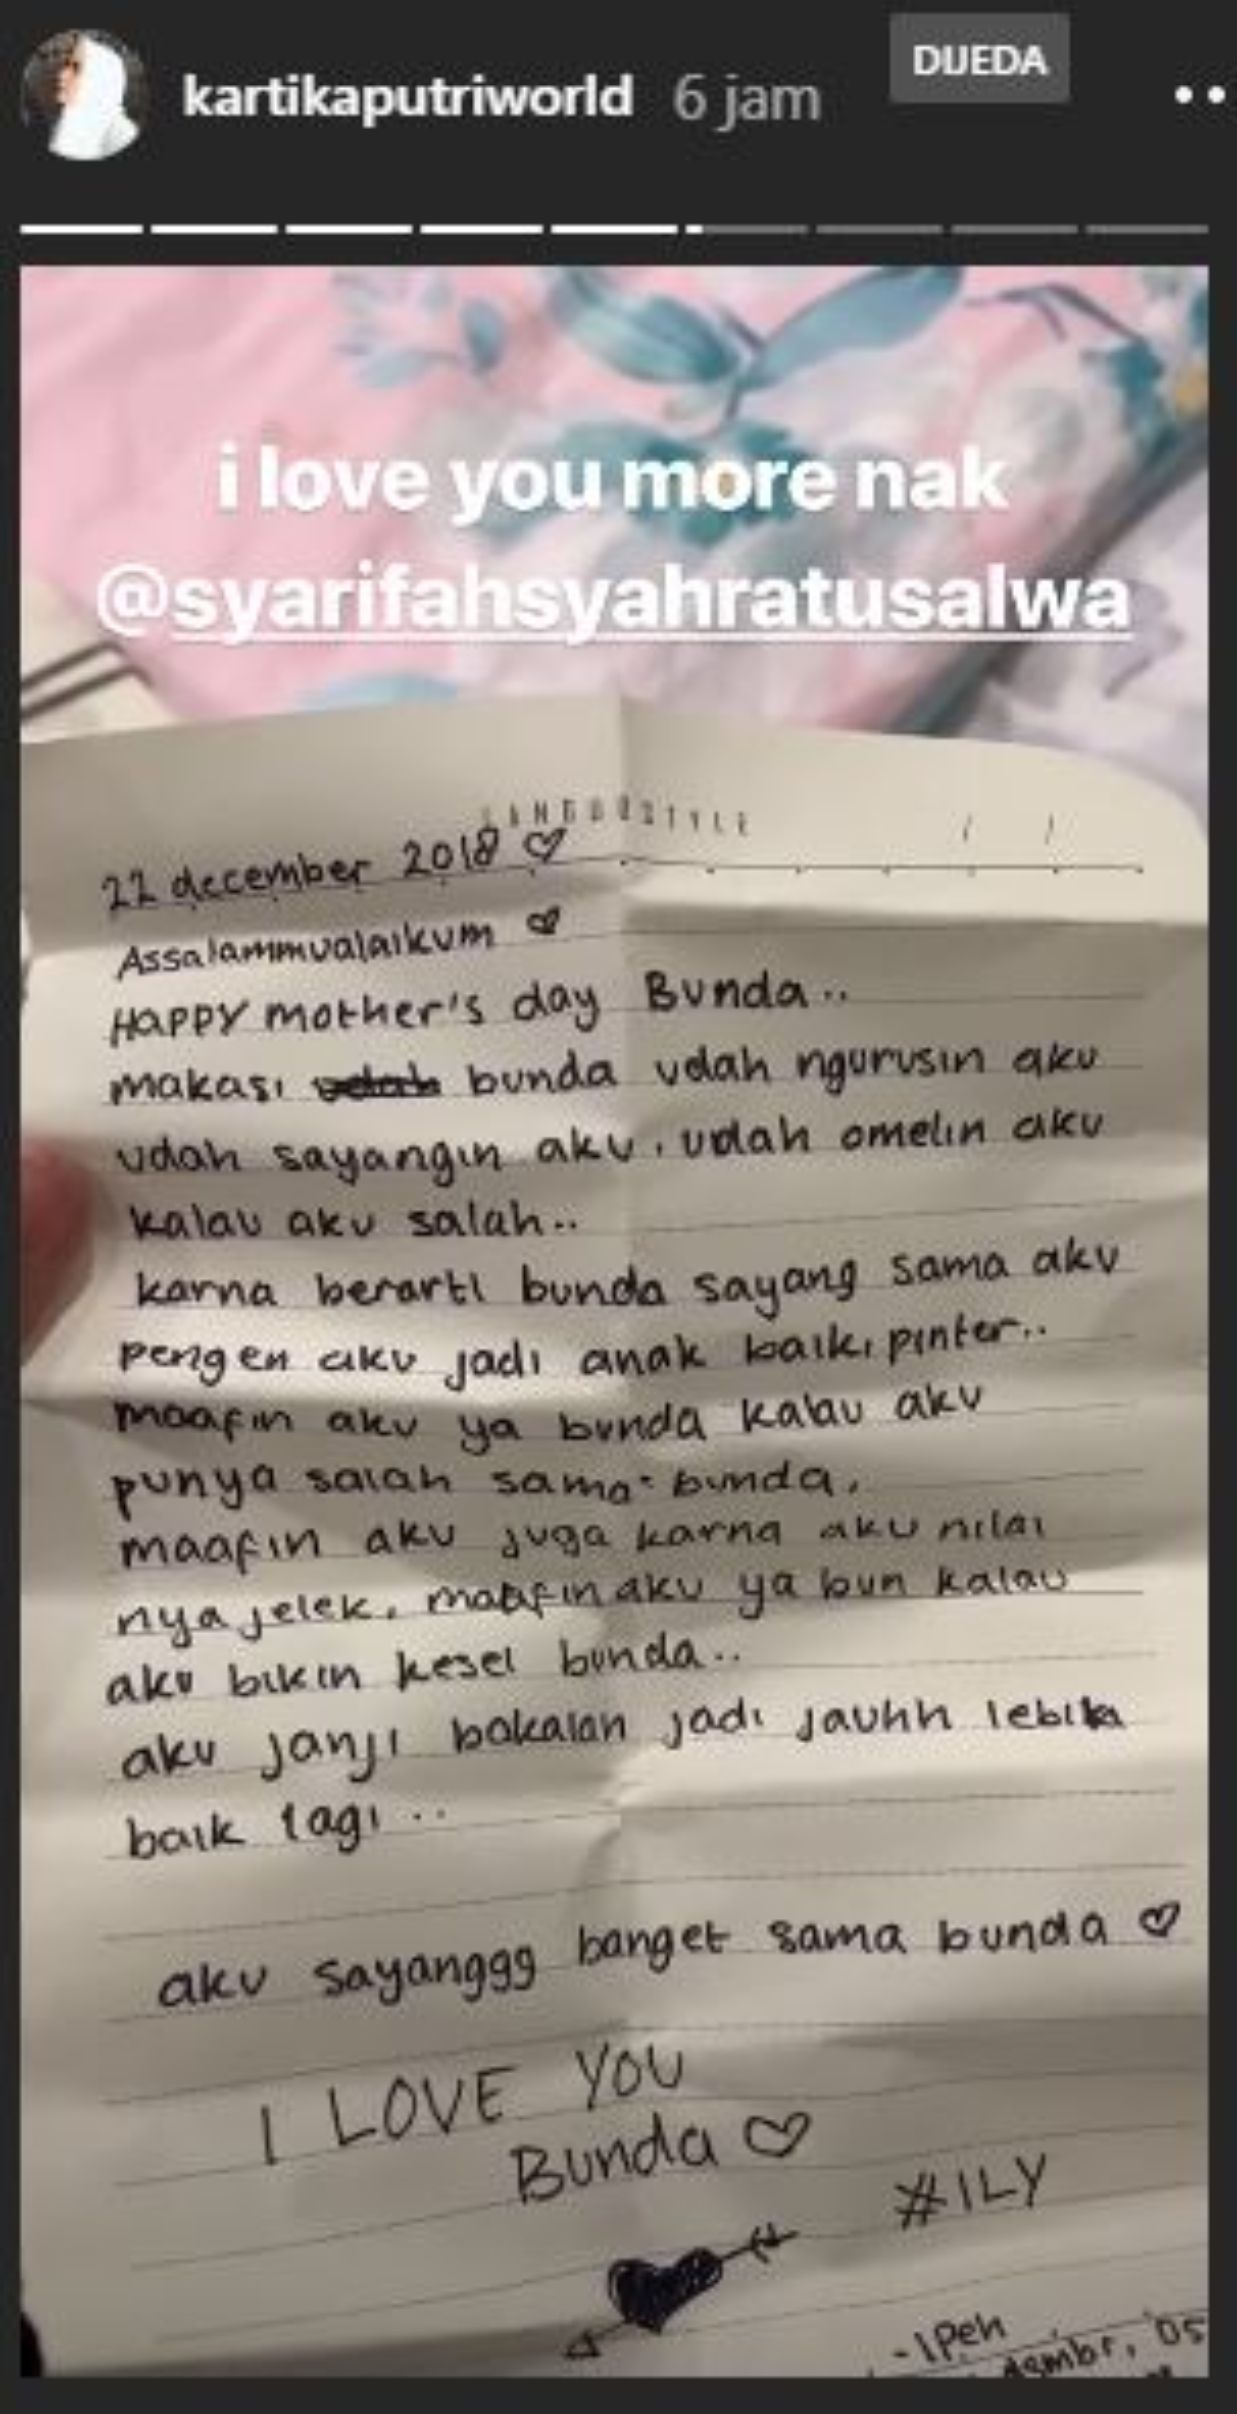 kartikaputriworld 6 jam
DIJEDA
i love you more nak
@syarifahsyahratusalwa
22 december 2018 ♡
Assalammualaikum ♡
HAPPY mother's day Bunda..
makasi udah bunda udah ngurusin aku
udah sayangin aku, udah omelin aku
kalau aku salah..
karna berarti bunda sayang sama aku
pengen aku jadi anak baik, pinter..
maafin aku ya bunda kalau aku
punya salah sama bunda,
maafin aku juga karna aku nilai
nya jelek, maafin aku ya bun kalau
aku bikin kesel bunda..
aku janji bakalan jadi jauhh lebih
baik lagi..
aku sayanggg banget sama bunda ♡
I LOVE YOU
Bunda ♡
#ILY
-IPeh